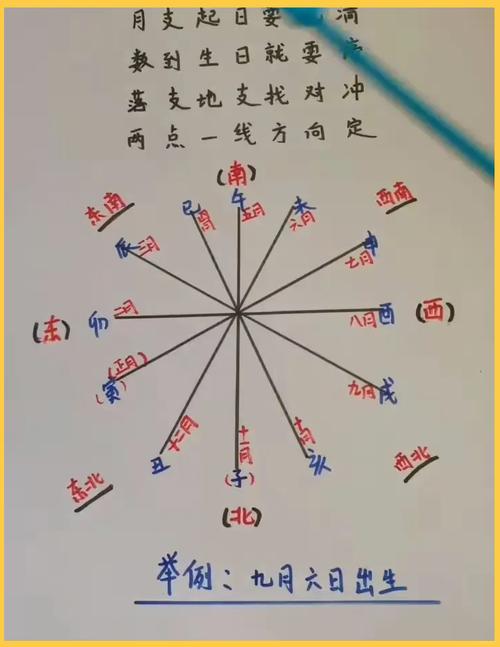 月支起日要
数到生日就要
落支地支找对冲
两点一线方向定
(南)
东南
西南
巳
午 五月
未 六月
辰 三月
七月 申
(东)
卯 二月
八月 酉
(西)
(正月)
(寅)
九月 戌
十二月
丑
十一月
(子)
十月
亥
东北
西北
(北)
举例：九月六日出生